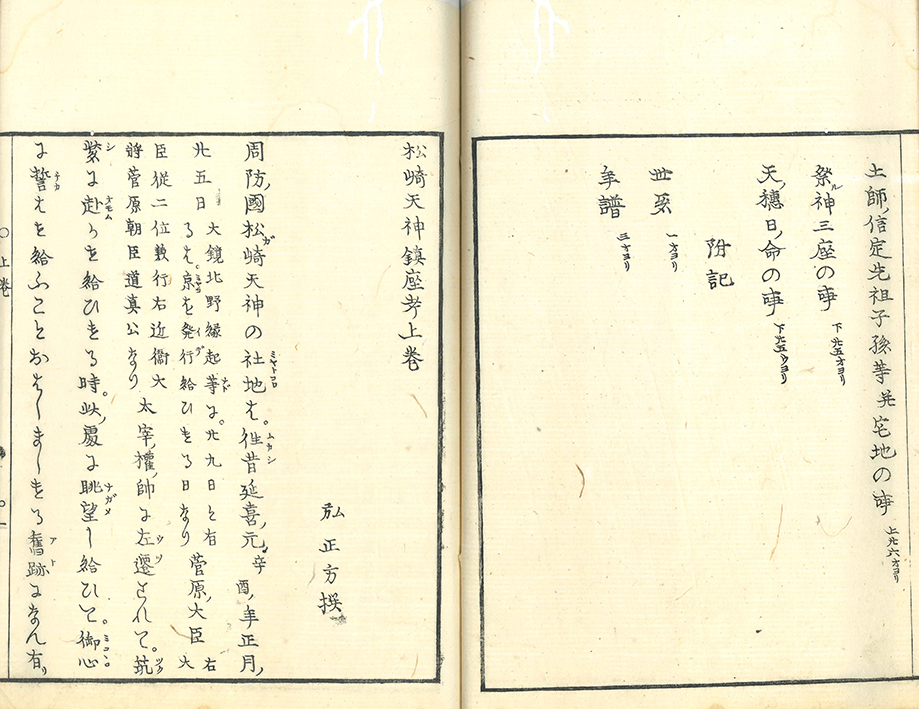 土師ノ信定先祖子孫等并宅地の事 上廿六オヨリ
祭ル神三座の事 下廿五オヨリ
天ノ穂日ノ命の事 下廿五ウヨリ
附記
世系 一オヨリ
年譜 三オヨリ
松崎天神鎮座考上巻
弘正方撰
周防ノ國松ガ崎天神の社地は。徃昔延喜ノ元ノ辛酉ノ年正月ノ
廿五日 大鏡北野縁起等に。廿九日と有るは。京を発行給ひたる日なり 菅原ノ大臣 右大
臣従二位勲行右近衛大将菅原朝臣道真公なり 太宰ノ權ノ帥に左遷されて。筑
紫に赴かせ給ひたる時。此ノ處に眺望し給ひて。御心
に誓はせ給ふことおはしましたる舊跡になん有ル
○上巻 ○一